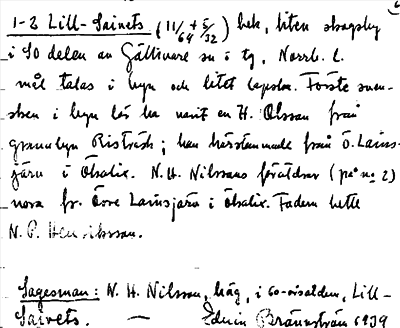 1-2 Lill-Saivets (11/64 + 5/32) bek, liten skogsby
i SO delen av Gällivare sn i tg, Norrb. l.
mål talas i byn och litet lapska. Förste sven-
sken i byn lär ha varit en H. Olsson från
grannbyn Risträsk; han härstammade från Ö. Lains-
järv i Ökalix. N. H. Nilssons föräldrar (på nº 2)
voro fr. Övre Lainsjärv i Ökalix. Fadern hette
N. P. Henriksson.
Sagesman: N. H. Nilsson, häg, i 60-årsåldern, Lill-
Saivets. — Edvin Brännström 1939